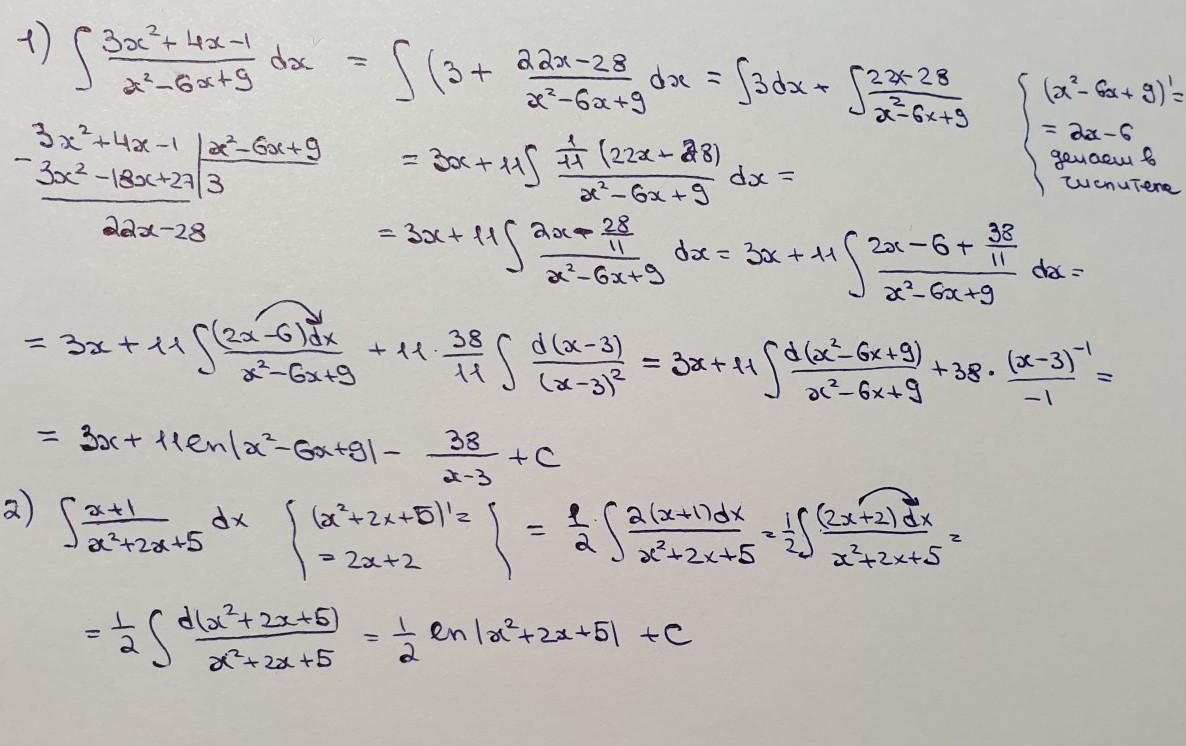 1) ∫ (3x²+4x-1)/(x²-6x+9) dx = ∫ (3 + (22x-28)/(x²-6x+9) dx = ∫3dx + ∫ (22x-28)/(x²-6x+9) { (x²-6x+9)'= = 2x-6 делаем в числителе
- 3x²+4x-1 | x²-6x+9
3x²-18x+27 | 3
22x-28
= 3x+11∫ (1/11 (22x-28))/(x²-6x+9) dx =
= 3x+11∫ (2x-28/11)/(x²-6x+9) dx = 3x+11∫ (2x-6+38/11)/(x²-6x+9) dx =
= 3x+11∫ ((2x-6)dx)/(x²-6x+9) + 11·38/11 ∫ d(x-3)/(x-3)² = 3x+11∫ d(x²-6x+9)/(x²-6x+9) + 38·(x-3)⁻¹/-1 =
= 3x+11ln|x²-6x+9| - 38/(x-3) + C
2) ∫ (x+1)/(x²+2x+5) dx { (x²+2x+5)'= = 2x+2 } = 1/2·∫ (2(x+1)dx)/(x²+2x+5) = 1/2∫ ((2x+2)dx)/(x²+2x+5) =
= 1/2 ∫ d(x²+2x+5)/(x²+2x+5) = 1/2 ln|x²+2x+5| + C